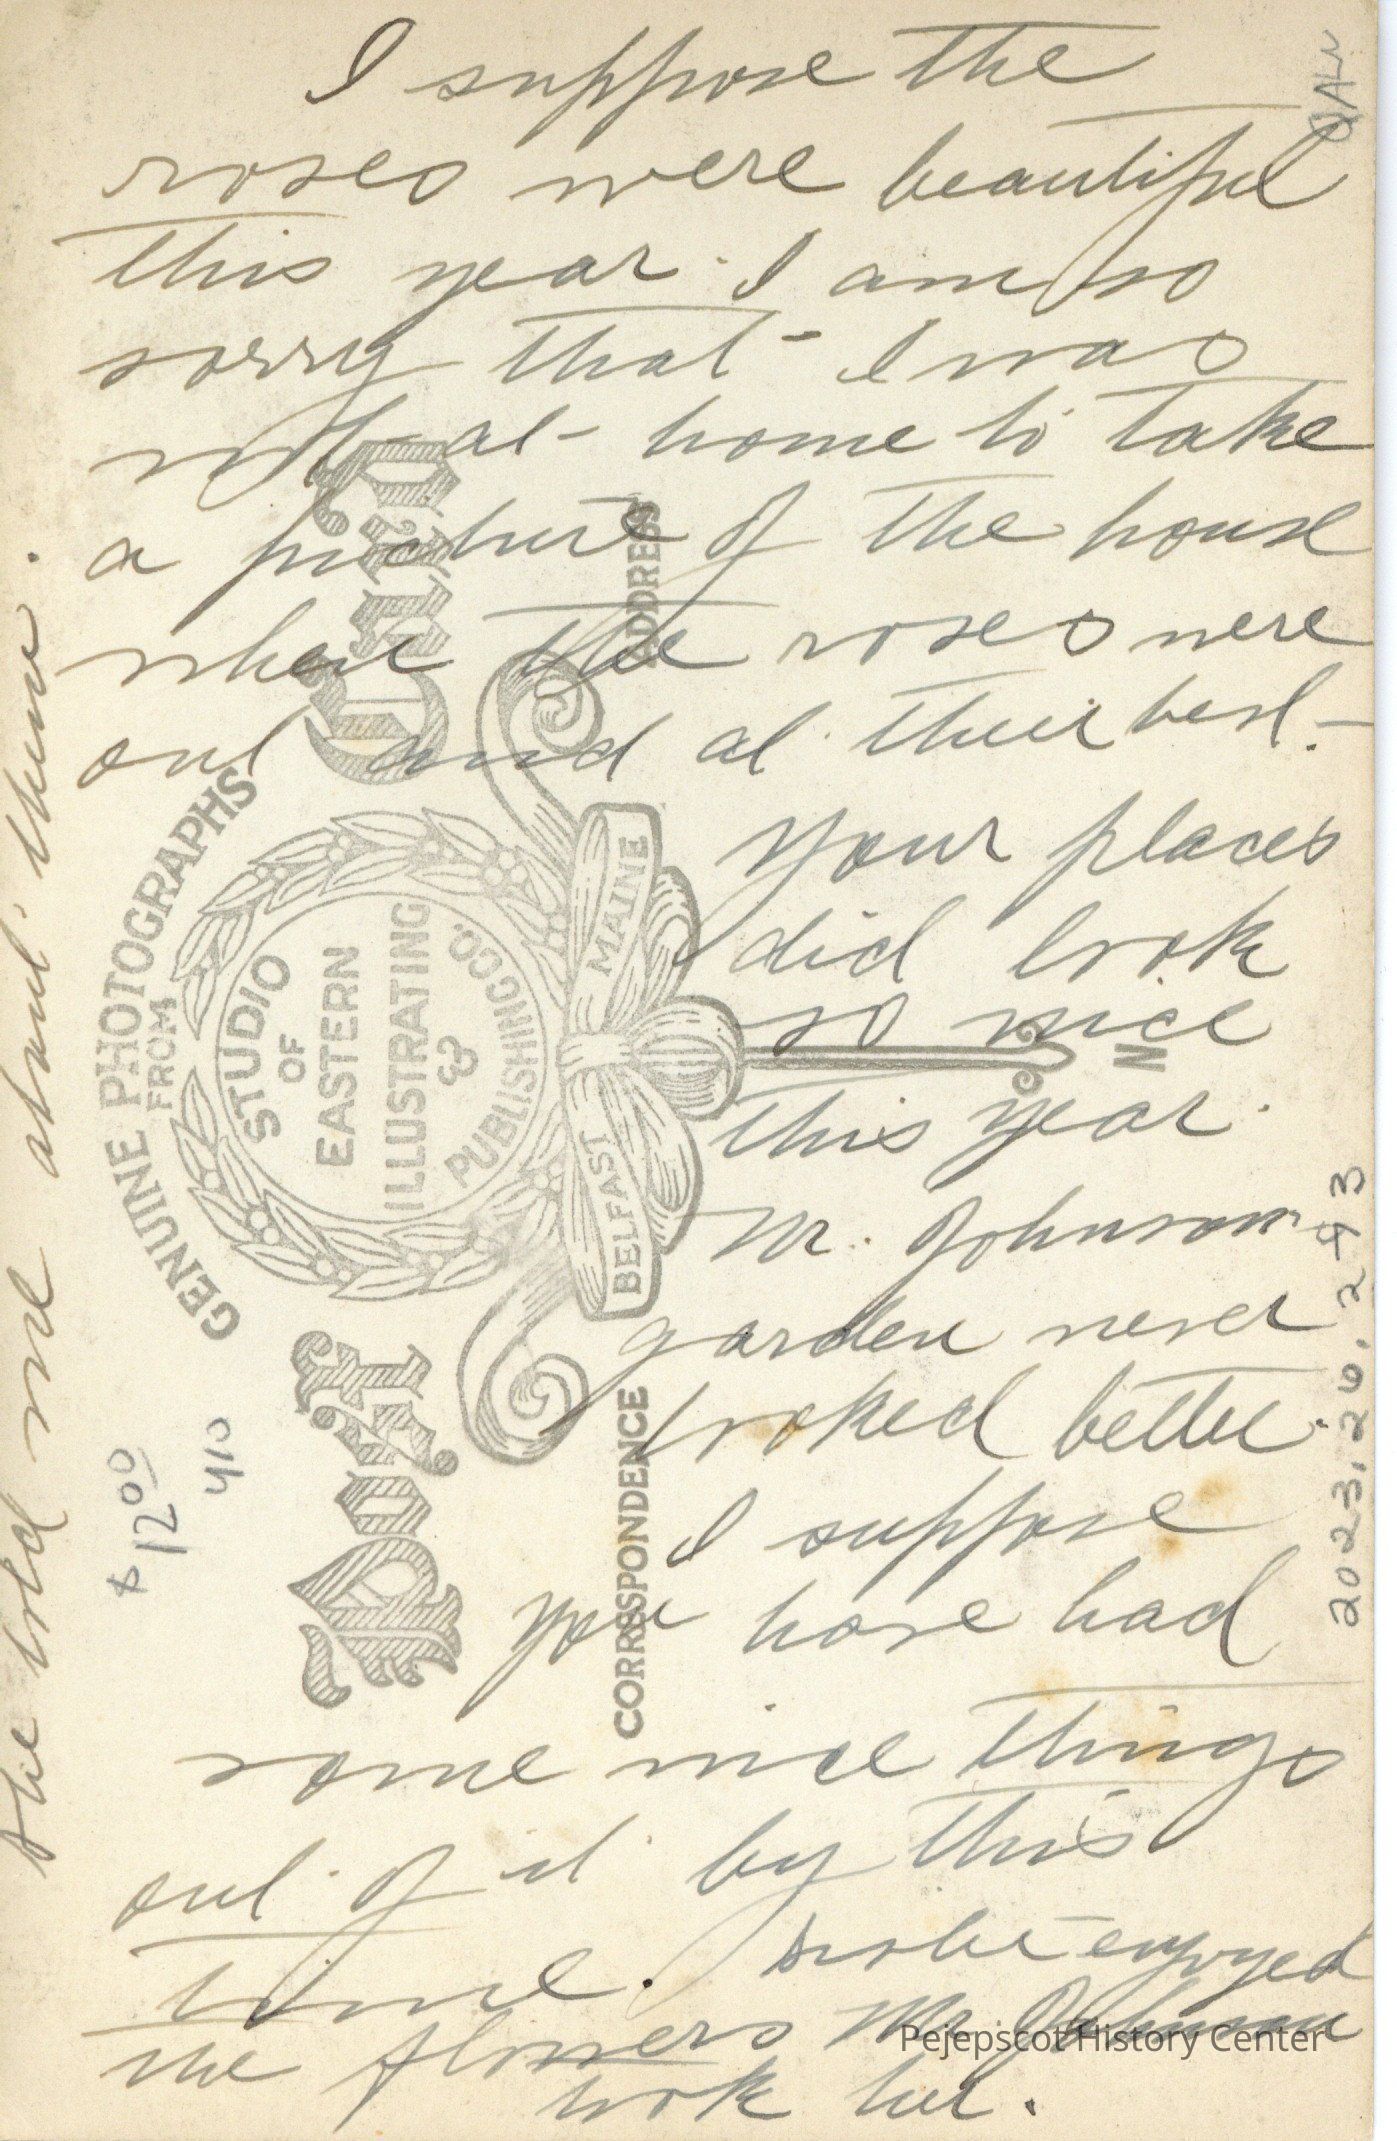 I suppose the
roses were beautiful
this year. I am so
sorry that I was
not at home to take
a picture of the house
when the roses were
out and at their best.
Your places
did look
so nice
this year.
Mr. Johnson
garden never
looked better.
I suppose
you have had
some nice things
out of it by this
time. sister enjoyed
the flowers Mr. Johnson
took her.
She told me about them.
Post Card
CORRESPONDENCE
ADDRESS
GENUINE PHOTOGRAPHS
FROM
STUDIO
OF
EASTERN
ILLUSTRATING
&
PUBLISHING CO.
BELFAST MAINE
N
$12.00
410
2023.26.293
Pejepscot History Center